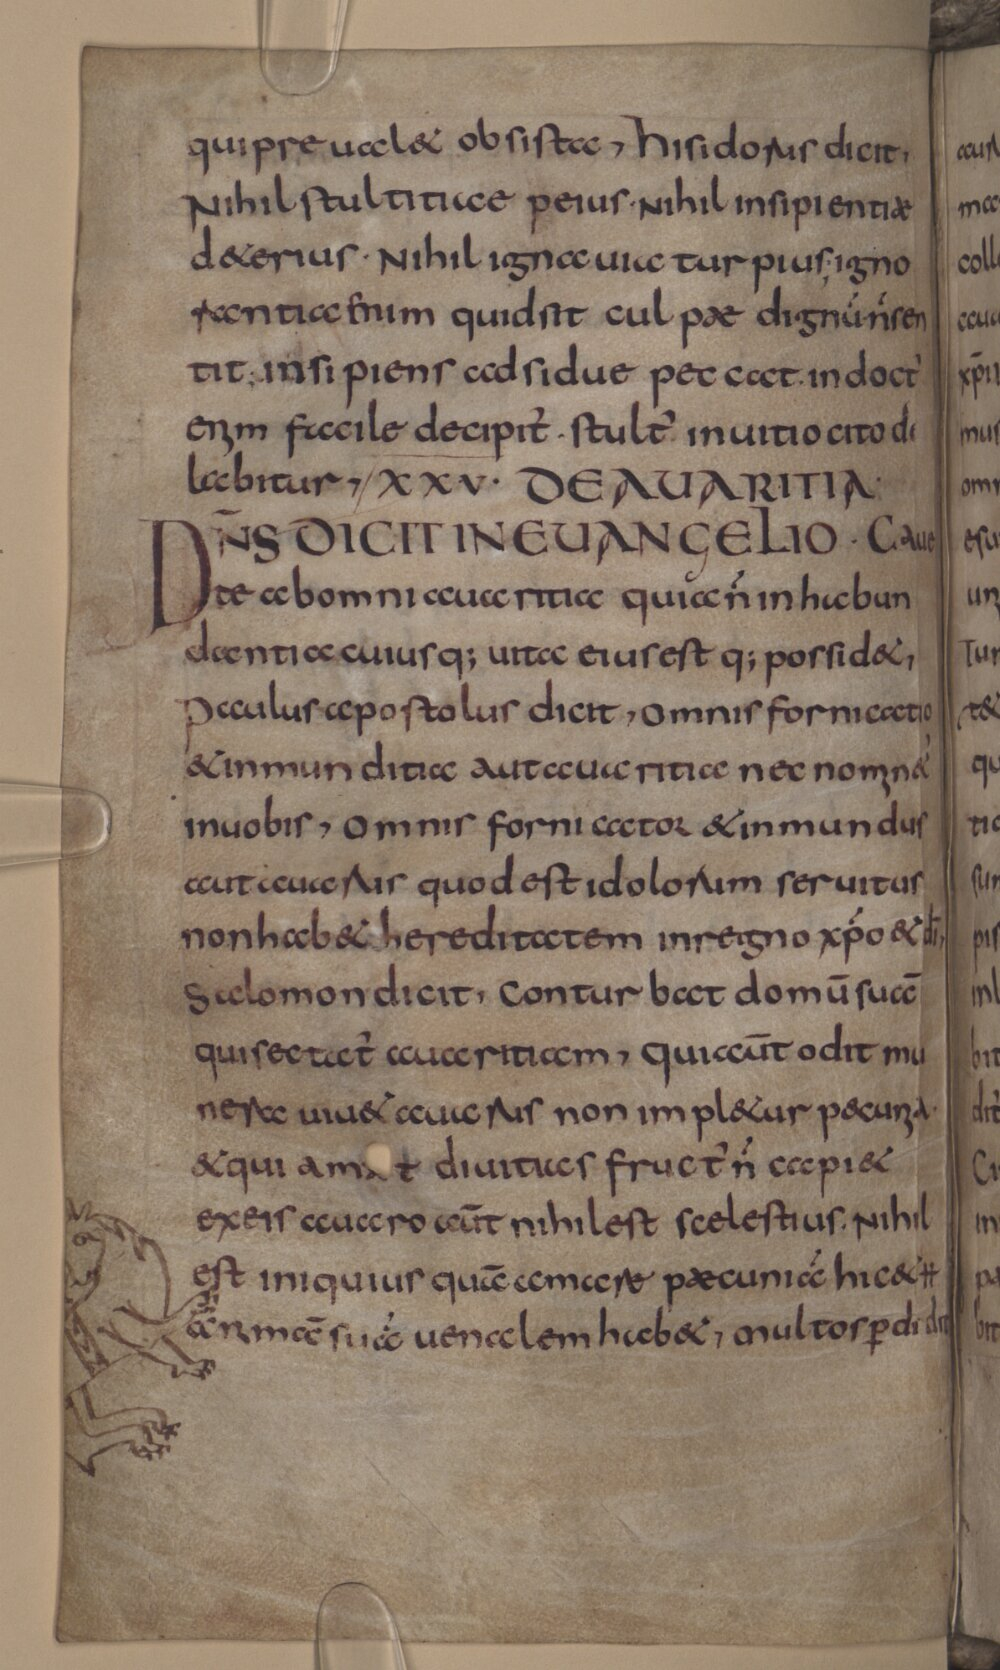 qui preualet obsistat, hisidorus dicit,
Nihil stultitiae peius. Nihil insipientiae
deterius. Nihil ignauia turpius, igno
rantia enim quid sit culpae dignū ń sen
tit; insipiens adsidue peccat. indoct᾽
enim facile decipit᾽. stult᾽ in uitio cito di
labitur, XXV. DE AUARITIA.
DN̄S DICIT IN EUANGELIO. Caue
te ab omni auaritia quia ń in habun
dantia cuiusq; uita eius est q; possidet,
Paulus apostolus dicit, Omnis fornicatio
& inmunditia aut auaritia nec nomin&᾽
in uobis, Omnis fornicator & inmundus
aut auarus quod est idolorum seruitus
non hab& hereditatem in regno xp̄o & dī,
Salomon dicit, Conturbat domū suā
qui sectat᾽ auaritiam, Qui aūt odit mu
nera uiu& auarus non impletur pecunia.
& qui amat diuitias fruct᾽ ń capi&
ex eis auaro aūt nihil est scelestius. Nihil
est iniquius quā amare paecuniā hic &
animā suā uenalem hab&, multos p̱didit